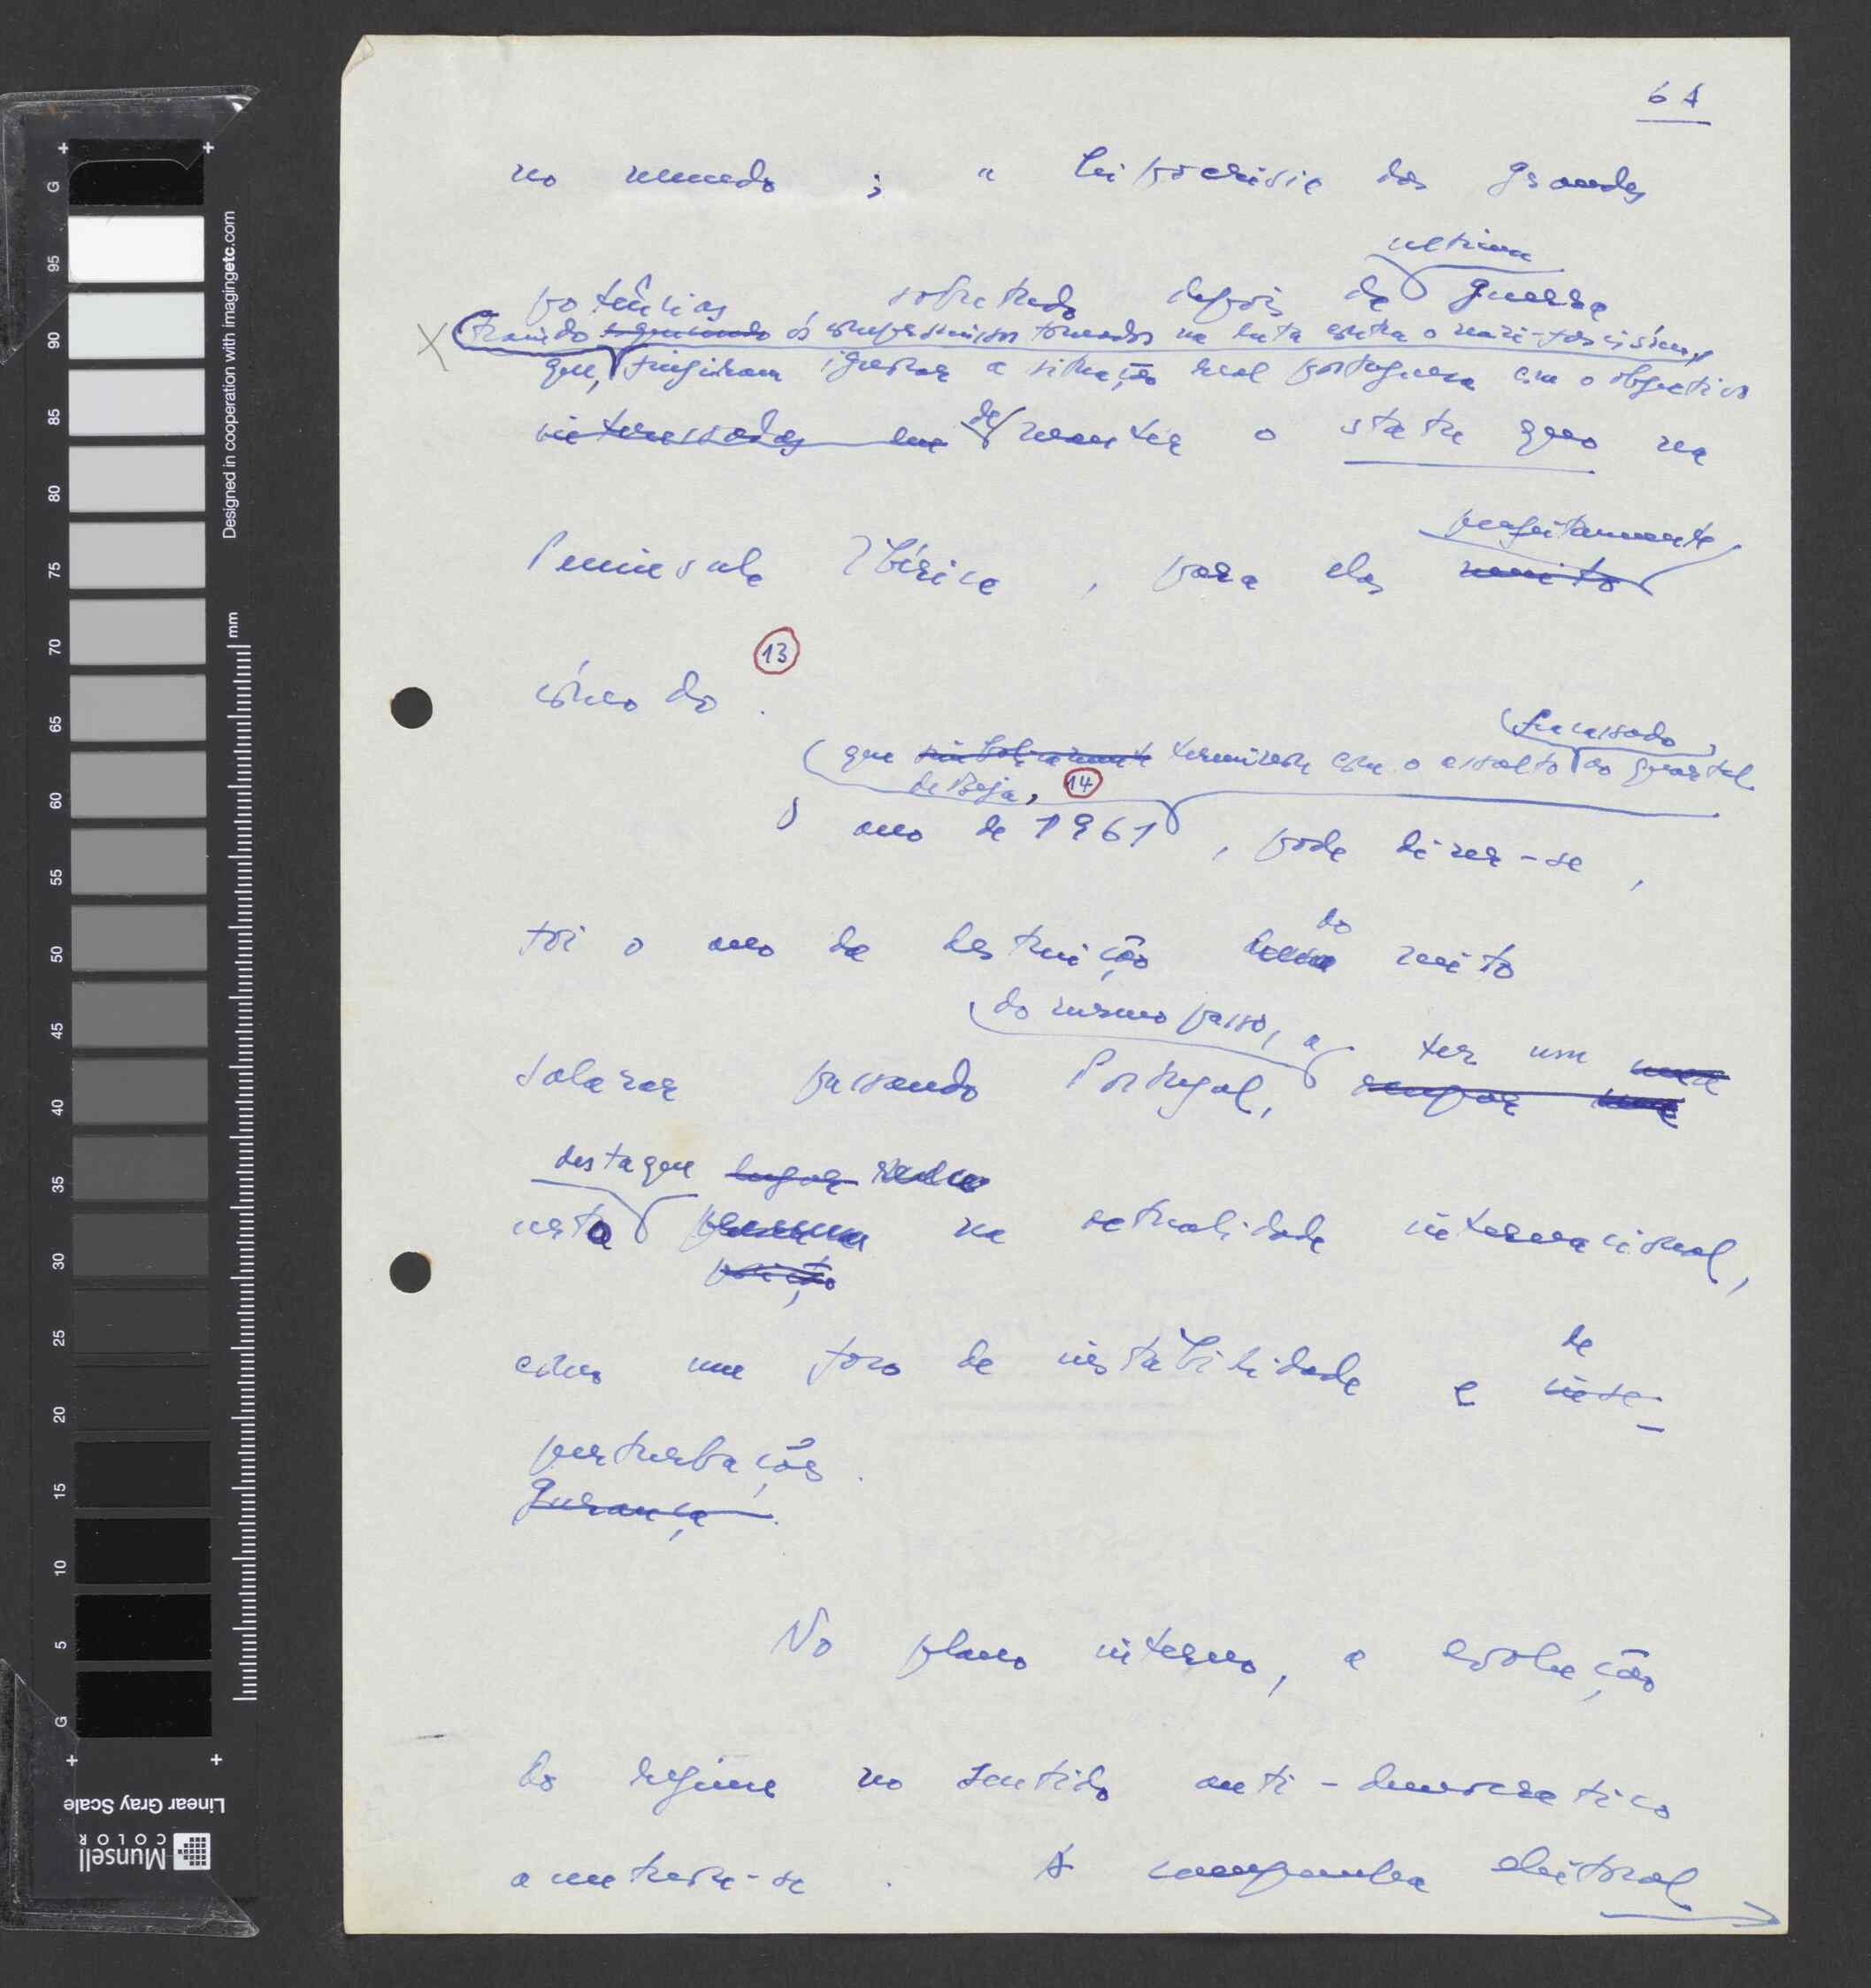 61
no mundo ; a hipocrisia das grandes
ultima
potências , sobretudo depois da guerra
traindo os compromissos tomados na luta contra o nazi-fascismo,
que, fingiram ignorar a situação real portuguesa com o objectivo
interessadas em de manter o statu quo na
perfeitamente
Peninsula Ibérica , para elas muito
13
cómodo .
fracassado
(que simbolicamente terminou com o assalto ao quartel
de Beja, 14
O ano de 1961 , pode dizer-se ,
do
foi o ano da destruição mito
do mesmo passo, a ter um
Salazar passando Portugal, ocupar uma
destaque lugar
nesta na actualidade internacional,
posição
de
como um foco de instabilidade e inse-
perturbações .
gurança .
No plano interno, a evolução
do regime no sentido anti-democratico
acentuou-se . A campanha eleitoral
Designed in cooperation with imagingetc.com
mm
G
95
90
85
80
75
70
65
60
55
50
45
40
35
30
25
20
15
10
5
G
Linear Gray Scale
Munsell
COLOR